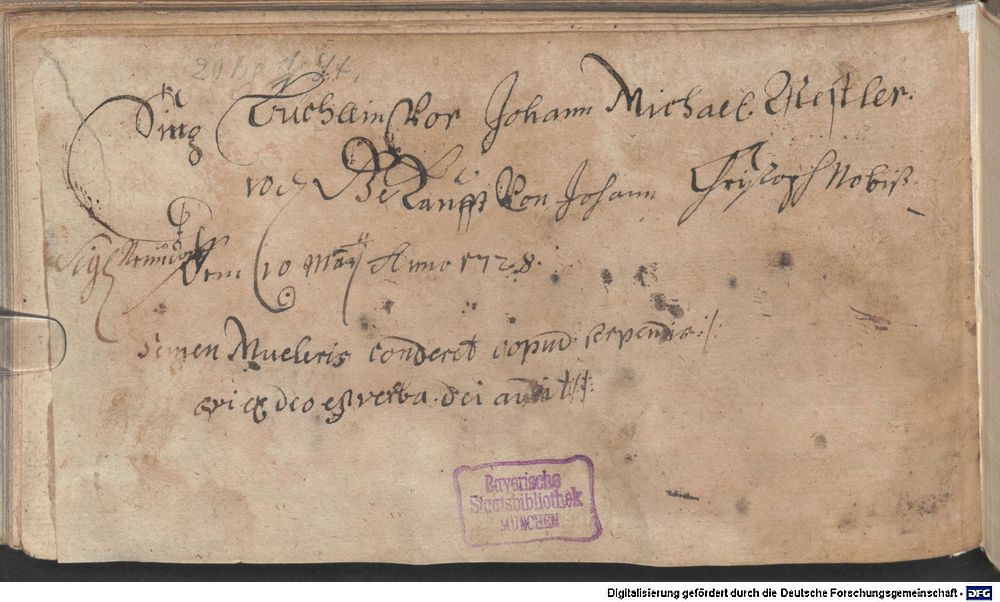 Sing Buchlein Vor Johann Michael Nestler.
Von Johann Christoph Nobiß.
den 10 Maÿ Anno 1728.
semen Mueleris conderet capud serpendis:/.
qvi ex deo est verba dei audit
Bayerische
Staatsbibliothek
MÜNCHEN
Digitalisierung gefördert durch die Deutsche Forschungsgemeinschaft - DFG